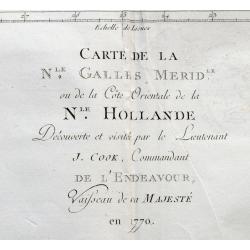 27 26 25 24 23
Echelle de Lieues
CARTE DE LA
Nle. GALLES MERIDle
ou de la Côte Orientale de la
Nle. HOLLANDE
Découverte et visitée par le Lieutenant
J. COOK, Commandant
DE L'ENDEAVOUR,
Vaisseau de sa MAJESTÉ
en 1770.